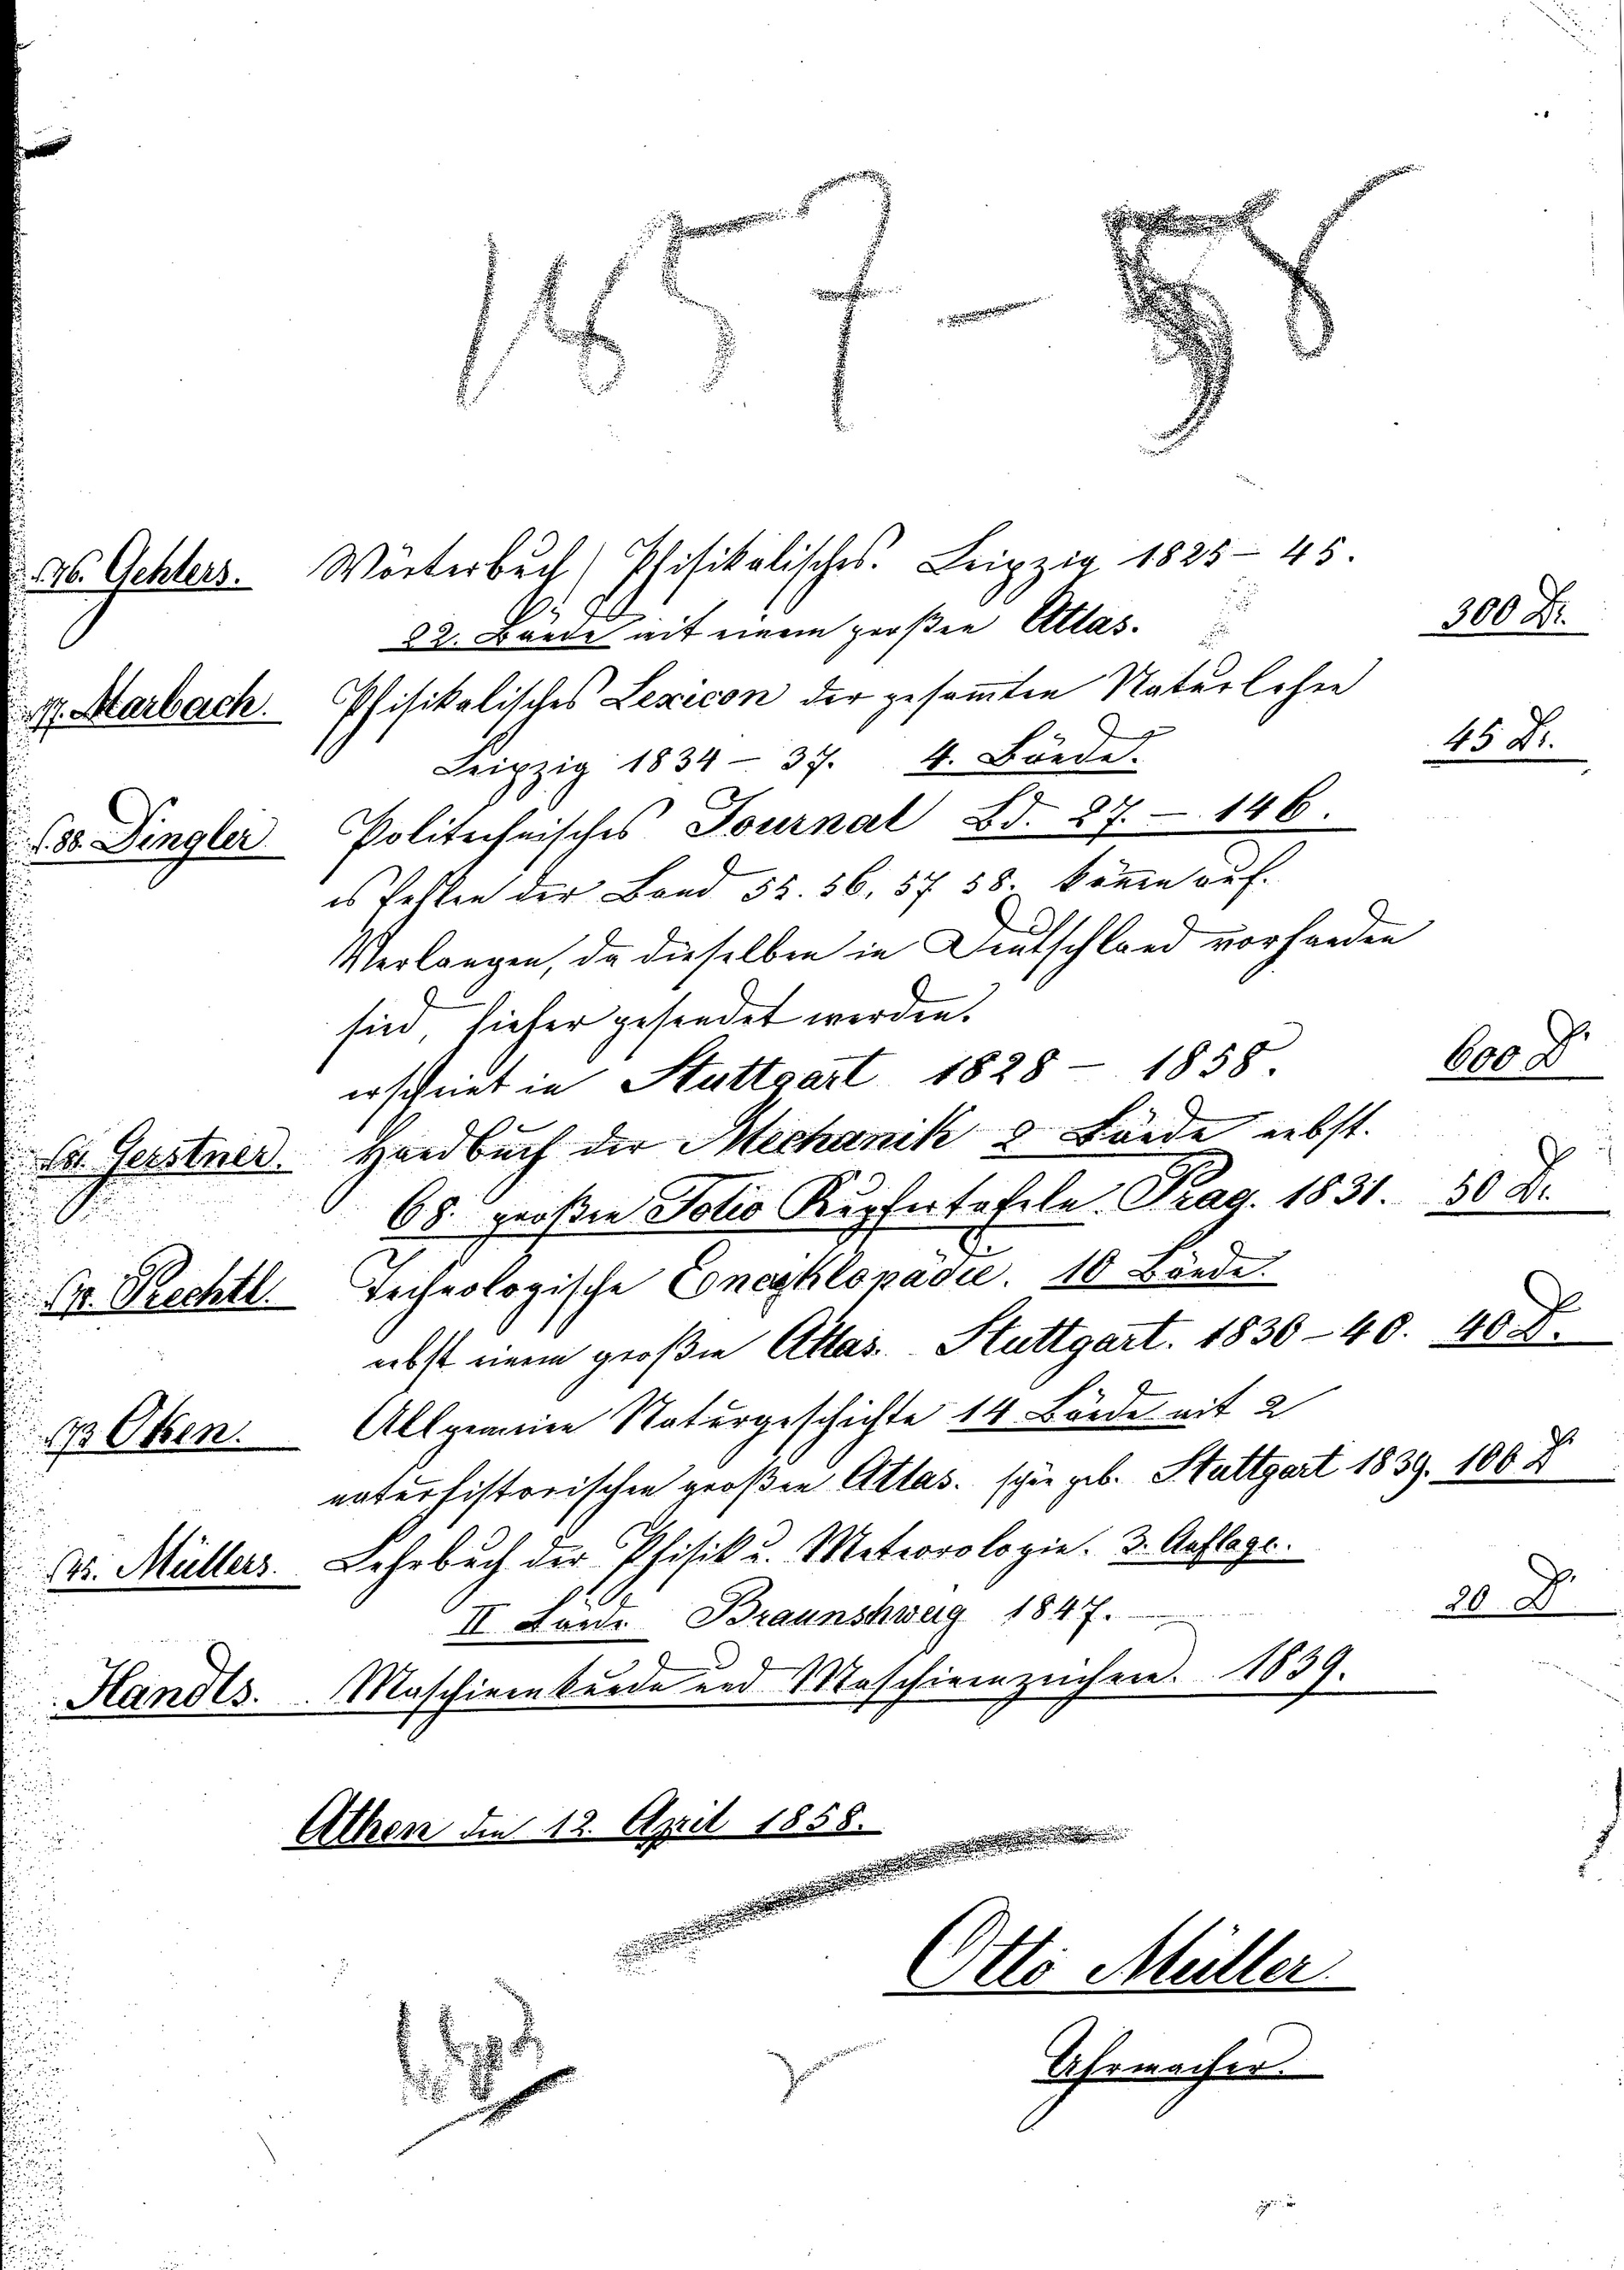 1857-58
Gehlers. Wörterbuch Phisikalisches. Leipzig 1825 - 45.
22. Bände mit einem großen Atlas. 300 Dr.
Marbach. Phisikalisches Lexicon der gesam̄ten Naturlehre
Leipzig 1834 - 37. 4. Bände. 45 Dr.
Dingler Politechnisches Journal Bd. 27. - 146.
es fehlen der Band 55. 56. 57 58. können auf
Verlangen, da dieselben in Deutschland vorhanden
sind, hieher gesendet werden.
erscheint in Stuttgart 1828 - 1858. 600 Dr
Gerstner. Handbuch der Mechanik 2 Bände nebst.
68. großen Folio Kupfertafeln Prag. 1831. 50 Dr.
Prechtl. Technologische Encyklopädie. 10 Bände.
nebst einem großen Atlas. Stuttgart. 1830 - 40. 40 D.
Oken. Allgemeine Naturgeschichte 14 Bände mit 2
naturhistorischen großen Atlas. schön geb. Stuttgart 1839. 100 Dr
Müllers. Lehrbuch der Phisik u. Meteorologie. 3. Auflage.
II Bände Braunshweig 1847. 20 Dr
Handls. Maschinenkunde und Maschinenzeichnen. 1839.
Athen den 12. April 1858.
Otto Müller
Uhrmacher.